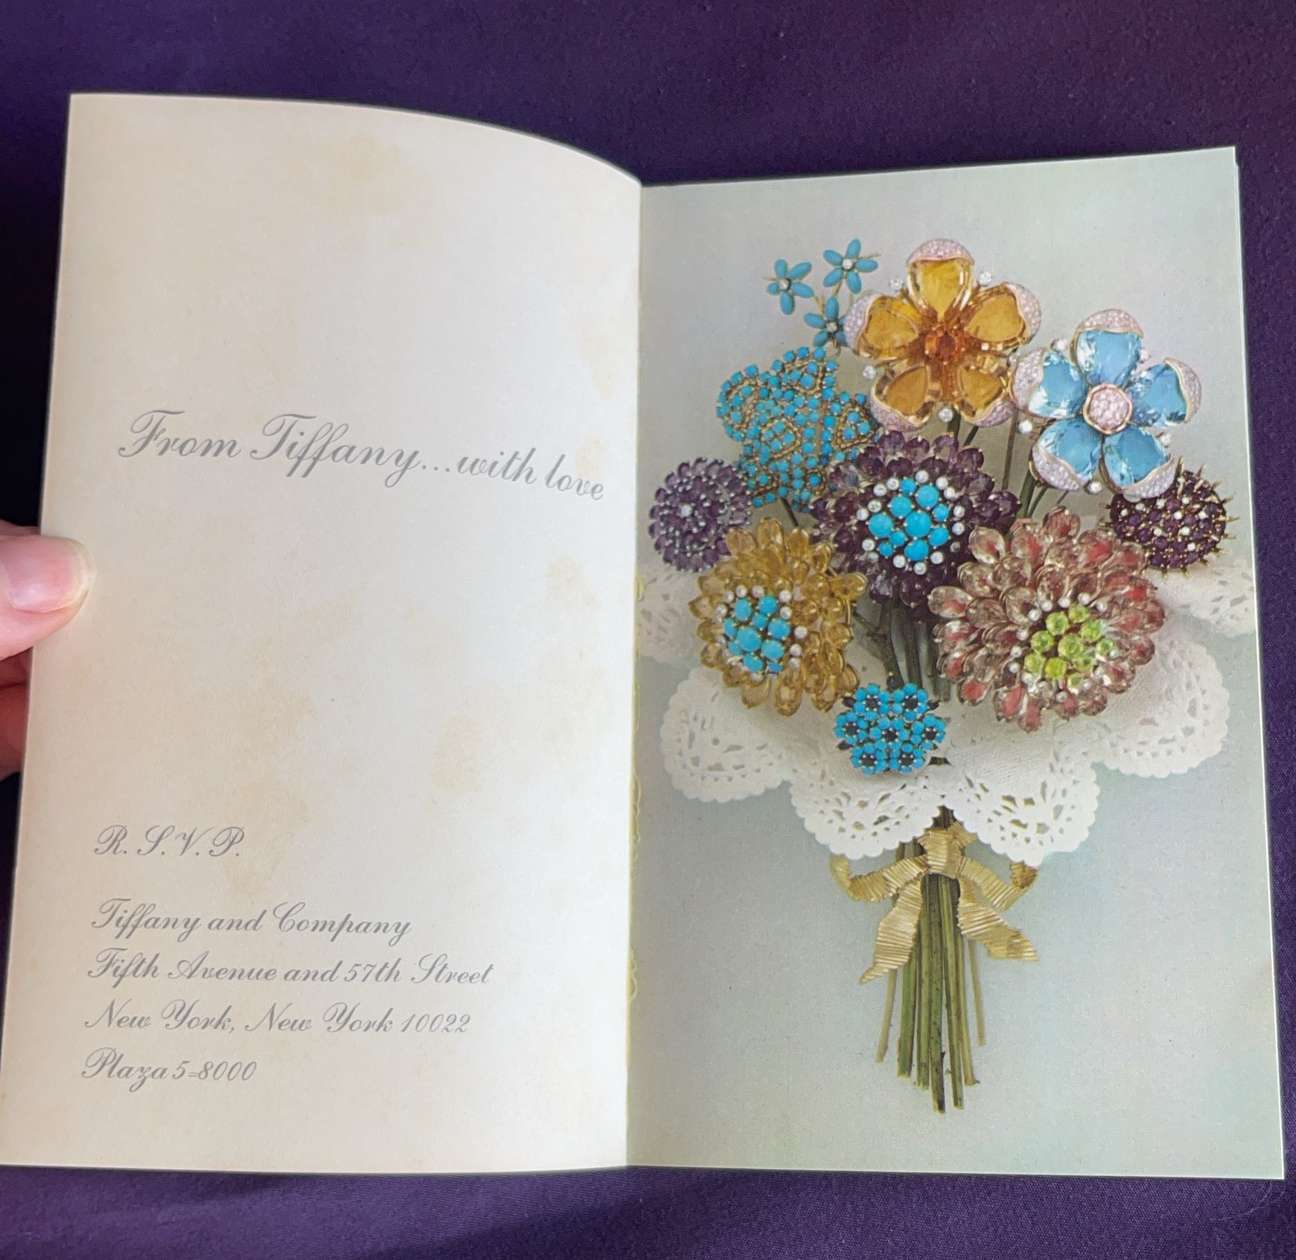 From Tiffany...with love
R. S. V. P.
Tiffany and Company
Fifth Avenue and 57th Street
New York, New York 10022
Plaza 5-8000